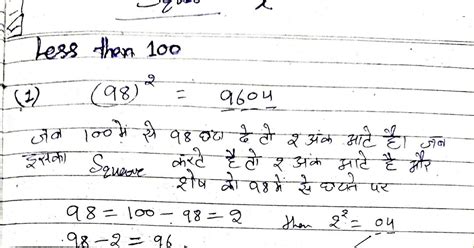 Square
Less than 100
(1) (98)² = 9604
जब 100 में से 98 घटा दे तो 2 अंक आते है। जब
इसका Square करते है तो 2 अंक आते है और
शेष को 98 में से घटाने पर
98 = 100 - 98 = 2 then 2² = 04
98 - 2 = 96